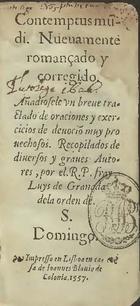 Contemptus mu
di. Nueuamente
romançado y
corregido.
Añadiosele vn breue tra
ctado de oraciones y exer
cicios de deuociõ muy pro
uechosos. Recopilados de
diuersos y graues Autores
, por el R.P. fray
Luys de Granada
dela orden de
S.
Domingo.
Impresso en Lixboa en ca
sa de Ioannes Blauio de
Colonia. 1557.